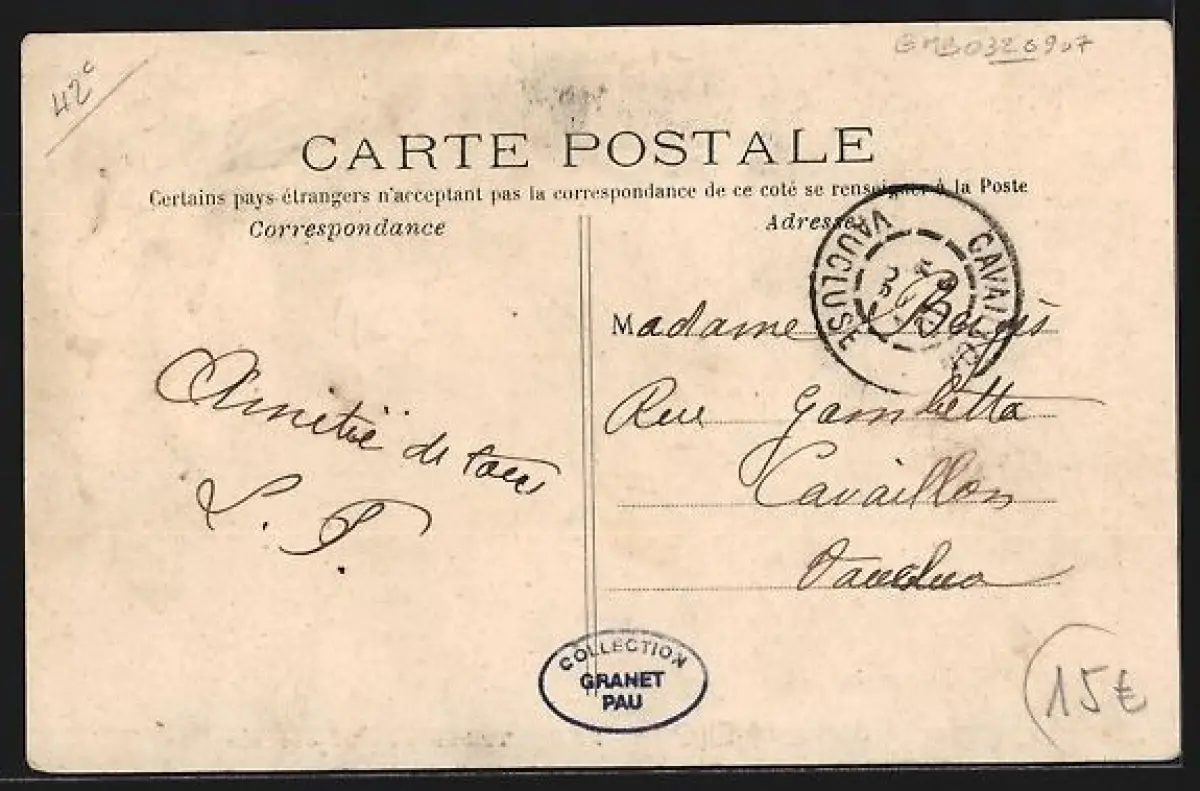 42c
CARTE POSTALE
Certains pays étrangers n'acceptant pas la correspondance de ce coté se renseigner à la Poste
Correspondance
Adresse
CAVAILLON
VAUCLUSE
Madame
Rue Gambetta
Cavaillon
Vaucluse
Amitié de tous
COLLECTION
GRANET
PAU
15€